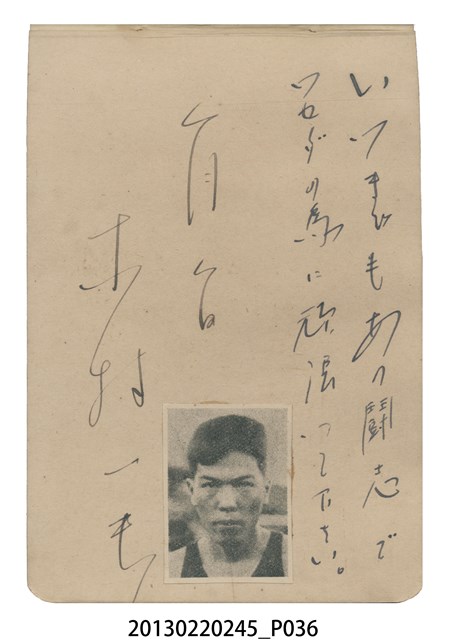 いつまでもあの闘志で
ワセダの為に頑張って下さい。
木村一
20130220245_P036